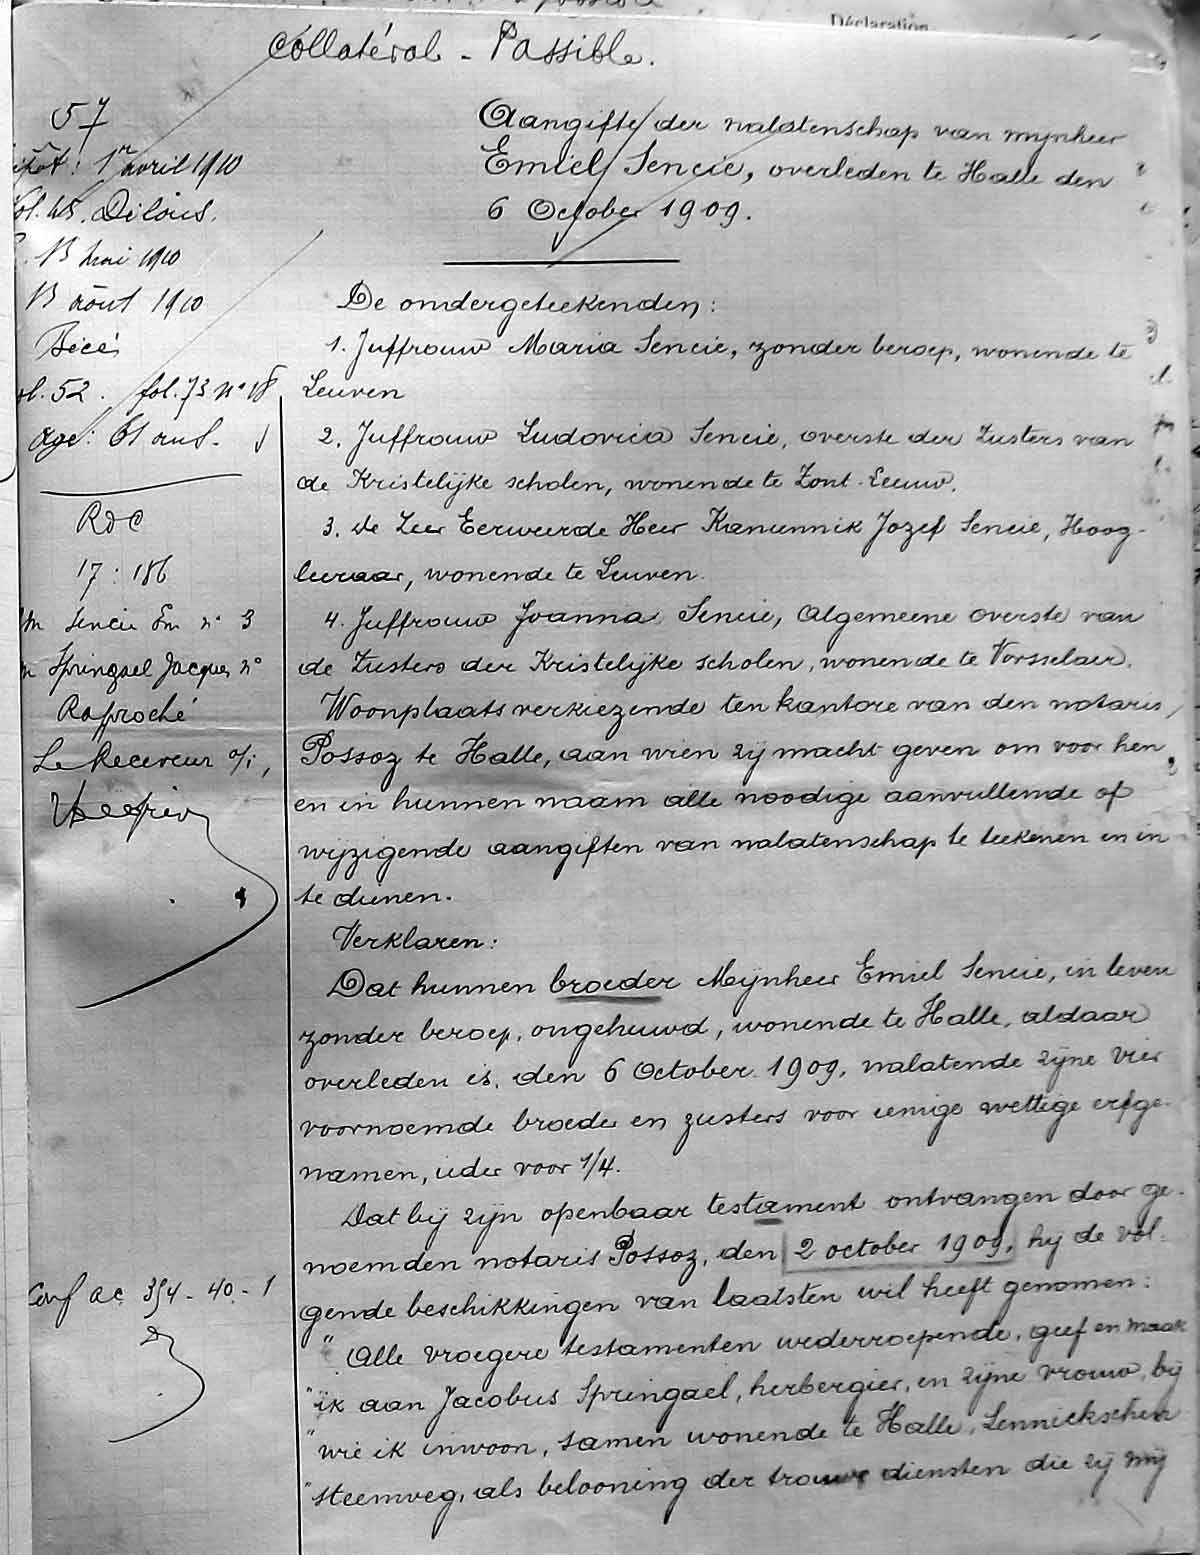 Déclaration
Collatéral - Passible.
57
1er avril 1910
vol. 45. Délais.
13 mai 1910
13 août 1910
vol. 52. fol. 73 n° 18
age: 61 ans.
RDC
17 : 186
Sencie Em n° 3
Springael Jacques n°
Rapproché
Le Receveur a/i,
Conf ac 354 - 40 - 1
Aangifte der nalatenschap van mijnheer
Emiel Sencie, overleden te Halle den
6 October 1909.
De ondergeteekenden:
1. Juffrouw Maria Sencie, zonder beroep, wonende te
Leuven
2. Juffrouw Ludovica Sencie, overste der Zusters van
de Kristelijke scholen, wonende te Zout-Leeuw.
3. De Zeer Eerweerde Heer Kanunnik Jozef Sencie, Hoog-
leeraar, wonende te Leuven.
4. Juffrouw Joanna Sencie, Algemeene overste van
de Zusters der Kristelijke scholen, wonende te Vorsselaer.
Woonplaats verkiezende ten kantore van den notaris
Possoz te Halle, aan wien zij macht geven om voor hen
en in hunnen naam alle noodige aanvullende of
wijzigende aangiften van nalatenschap te teekenen en in
te dienen.
Verklaren:
Dat hunnen broeder Mijnheer Emiel Sencie, in leven
zonder beroep, ongehuwd, wonende te Halle, aldaar
overleden is, den 6 October 1909, nalatende zijne vier
voornoemde broeder en zusters voor eenige wettige erfge-
namen, ieder voor 1/4.
Dat bij zijn openbaar testament ontvangen door ge-
noemden notaris Possoz, den 2 october 1909, hij de vol-
gende beschikkingen van laatsten wil heeft genomen:
" Alle vroegere testamenten wederroepende, geef en maak
" ik aan Jacobus Springael, herbergier, en zijne vrouw, bij
" wie ik inwoon, samen wonende te Halle, Lennickschen
" steenweg, als belooning der trouwe diensten die zij mij